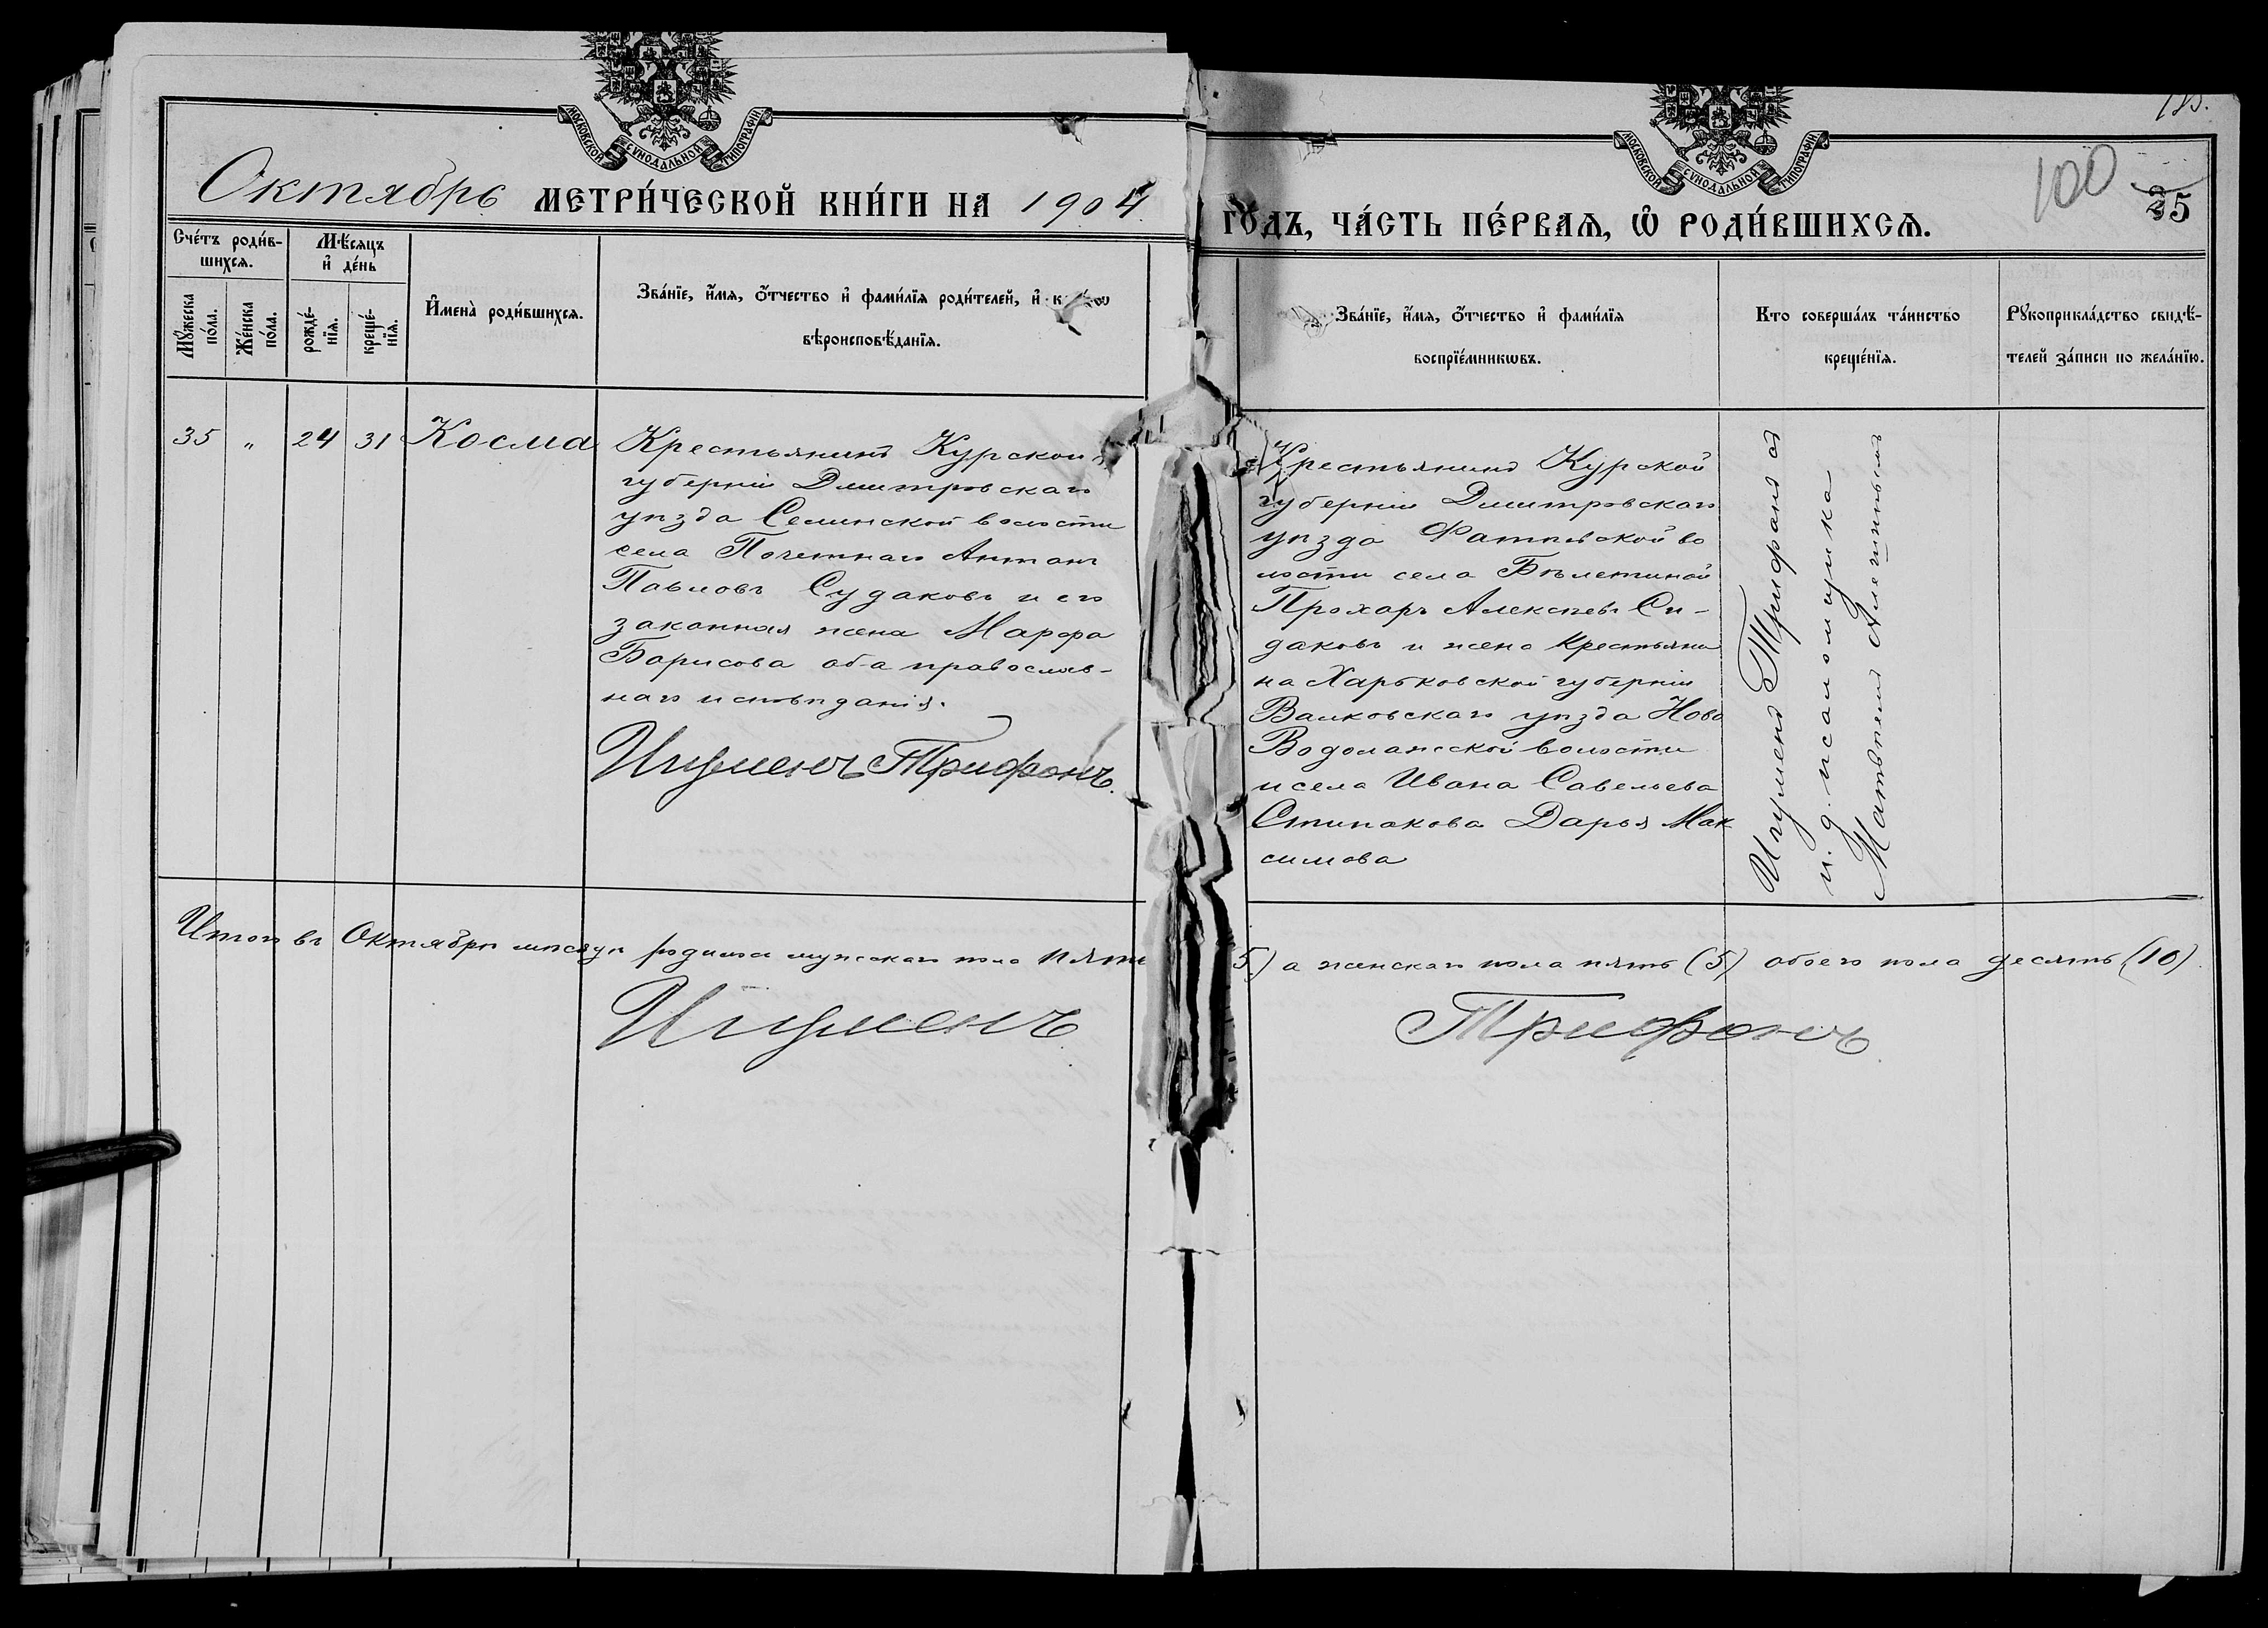 МОСКОВСКОЙ СУНОДАЛЬНОЙ ТИПОГРАФІИ
МОСКОВСКОЙ СУНОДАЛЬНОЙ ТИПОГРАФІИ
Октябрь МЕТРИ́ЧЕСКОЙ КНИ́ГИ НА 1904 ГО́ДЪ, ЧА́СТЬ ПЕ́РВАЯ, Ѡ РОДИ́ВШИХСЯ.
100
35
Сче́тъ роди́в-
шихся.
Мѣ́сяцъ
и҆ де́нь
Мꙋ́жеска
по́ла.
Же́нска
по́ла.
рожде́-
нїя.
креще́-
нїя.
И҆мена̀ роди́вшихся.
Зва́нїе, и҆́мя, ѻ҆́тчество и҆ фами́лїя роди́телей, и҆
вѣроисповѣ́данїя.
Зва́нїе, и҆́мя, ѻ҆́тчество и҆ фами́лїя
воспрїе́мникѡвъ.
Кто соверша́лъ та́инство
креще́нїя.
Рꙋкоприкла́дство свидѣ́-
телей за́писи по жела́нїю.
35 " 24 31 Косма
Крестьянинъ Курской
губерніи Дмитровскаго
уѣзда Селинской волости
села Почетнаго Антонъ
Павловъ Судаковъ и его
законная жена Марфа
Борисова оба православ-
наго исповѣданія.
Игуменъ Трифонъ.
Крестьянинъ Курской
губерніи Дмитровскаго
уѣзда волости села
Прохоръ Алексѣевъ Си-
даковъ и жена крестьяни
на Харьковской губерніи
Валковскаго уѣзда Ново
Водолажской волости
и села Ивана Савельева
Стипакова Дарья Мак
симова
Игуменъ Трифонъ съ
и. д. псаломщика
Матвѣемъ
Итого въ Октябрѣ мѣсяцѣ родилось мужскаго пола пять (5) а женскаго пола пять (5) обоего пола десять (10).
Игуменъ Трифонъ.